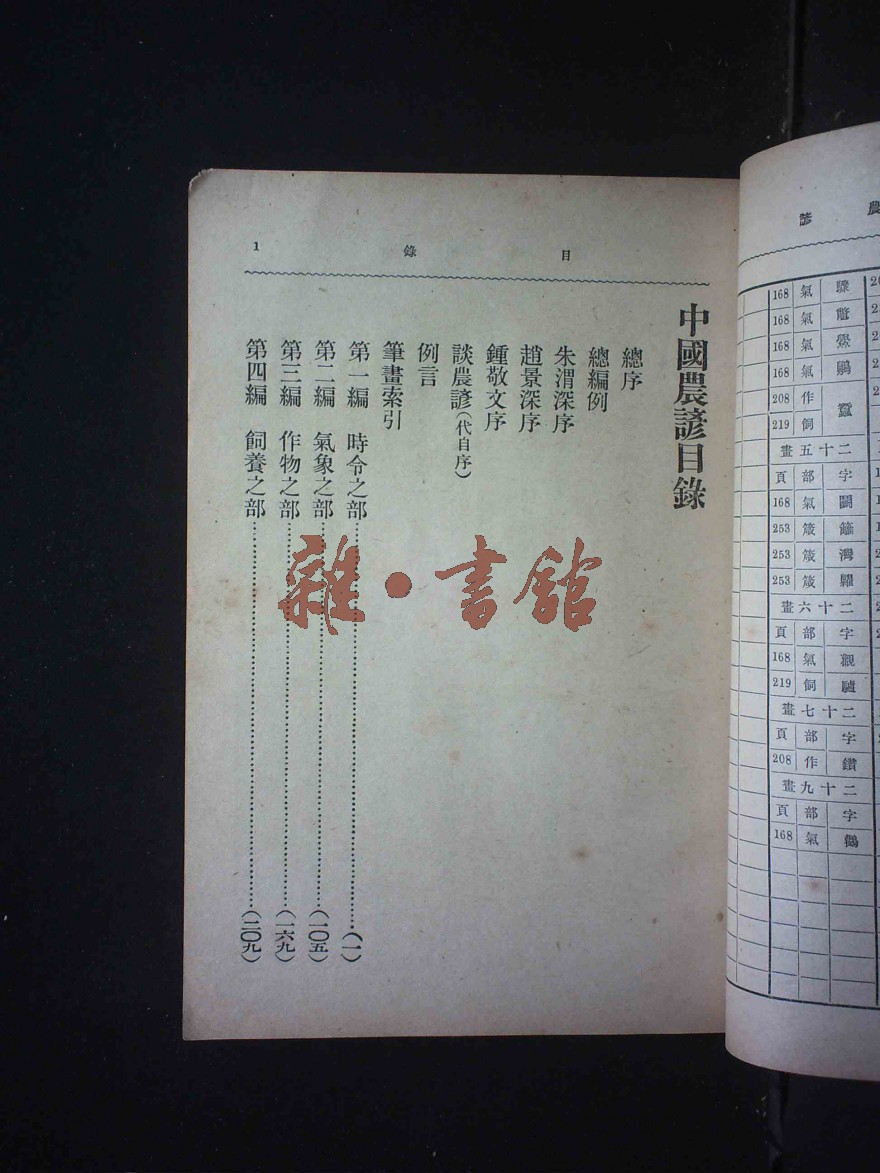 目錄 1
中國農諺目錄
總序
總編例
朱渭深序
趙景深序
鍾敬文序
談農諺(代自序)
例言
筆畫索引
第一編 時令之部……(一)
第二編 氣象之部……(一〇五)
第三編 作物之部……(一六九)
第四編 飼養之部……(二〇九)
雜·書館
農諺
驟 氣 168
氣 168
氣 168
氣 168
蠶 作 208
飼 219
二十五畫
字 部 頁
氣 168
箴 253
灣 箴 253
箴 253
二十六畫
字 部 頁
觀 氣 168
驢 飼 219
二十七畫
字 部 頁
鑽 作 208
二十九畫
字 部 頁
氣 168